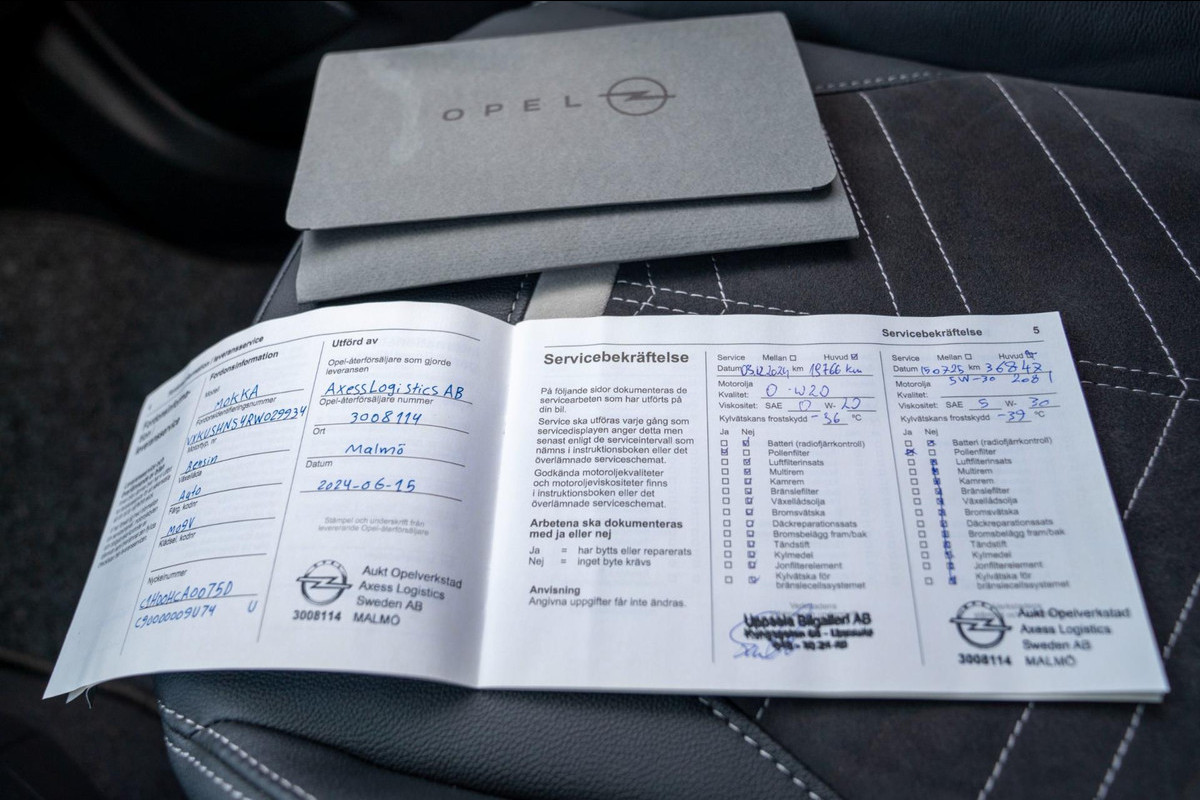 OPEL
Fordonsinformation
Modell
MOKKA
Fordonsidentifieringsnummer
VXKUSHNS4RW029934
Motortyp, nr
Bensin
Växellåda
Auto
Färg, kodnr
M09V
Klädsel, kodnr
Nyckelnummer
C1H00HCA0075D
C90000009U74 U
Utförd av
Opel-återförsäljare som gjorde
leveransen
AxessLogistics AB
Opel-återförsäljare nummer
3008114
Ort
Malmö
Datum
2024-06-15
Stämpel och underskrift från
levererande Opel-återförsäljare
Aukt Opelverkstad
Axess Logistics
Sweden AB
3008114 MALMÖ
Servicebekräftelse 5
Servicebekräftelse
På följande sidor dokumenteras de
servicearbeten som har utförts på
din bil.
Service ska utföras varje gång som
servicedisplayen anger detta men
senast enligt de serviceintervall som
nämns i instruktionsboken eller det
överlämnade serviceschemat.
Godkända motoroljekvaliteter
och motoroljeviskositeter finns
i instruktionsboken eller det
överlämnade serviceschemat.
Arbetena ska dokumenteras
med ja eller nej
Ja = har bytts eller reparerats
Nej = inget byte krävs
Anvisning
Angivna uppgifter får inte ändras.
Service Mellan Huvud
Datum 03.12.2024 km 19766 km
Motorolja
Kvalitet: 0-W20
Viskositet: SAE 0 W- 20
Kylvätskans frostskydd -36 °C
Ja Nej
Batteri (radiofjärrkontroll)
Pollenfilter
Luftfilterinsats
Multirem
Kamrem
Bränslefilter
Växellådsolja
Bromsvätska
Däckreparationssats
Bromsbelägg fram/bak
Tändstift
Kylmedel
Jonfilterelement
Kylvätska för
bränslecellssystemet
Uppsala Bilgalleri AB
Service Mellan Huvud
Datum 150725 km 36847
Motorolja 5W-30
Kvalitet:
Viskositet: SAE 5 W- 30
Kylvätskans frostskydd -39 °C
Ja Nej
Batteri (radiofjärrkontroll)
Pollenfilter
Luftfilterinsats
Multirem
Kamrem
Bränslefilter
Växellådsolja
Bromsvätska
Däckreparationssats
Bromsbelägg fram/bak
Tändstift
Kylmedel
Jonfilterelement
Kylvätska för
bränslecellssystemet
Aukt Opelverkstad
Axess Logistics
Sweden AB
3008114 MALMÖ